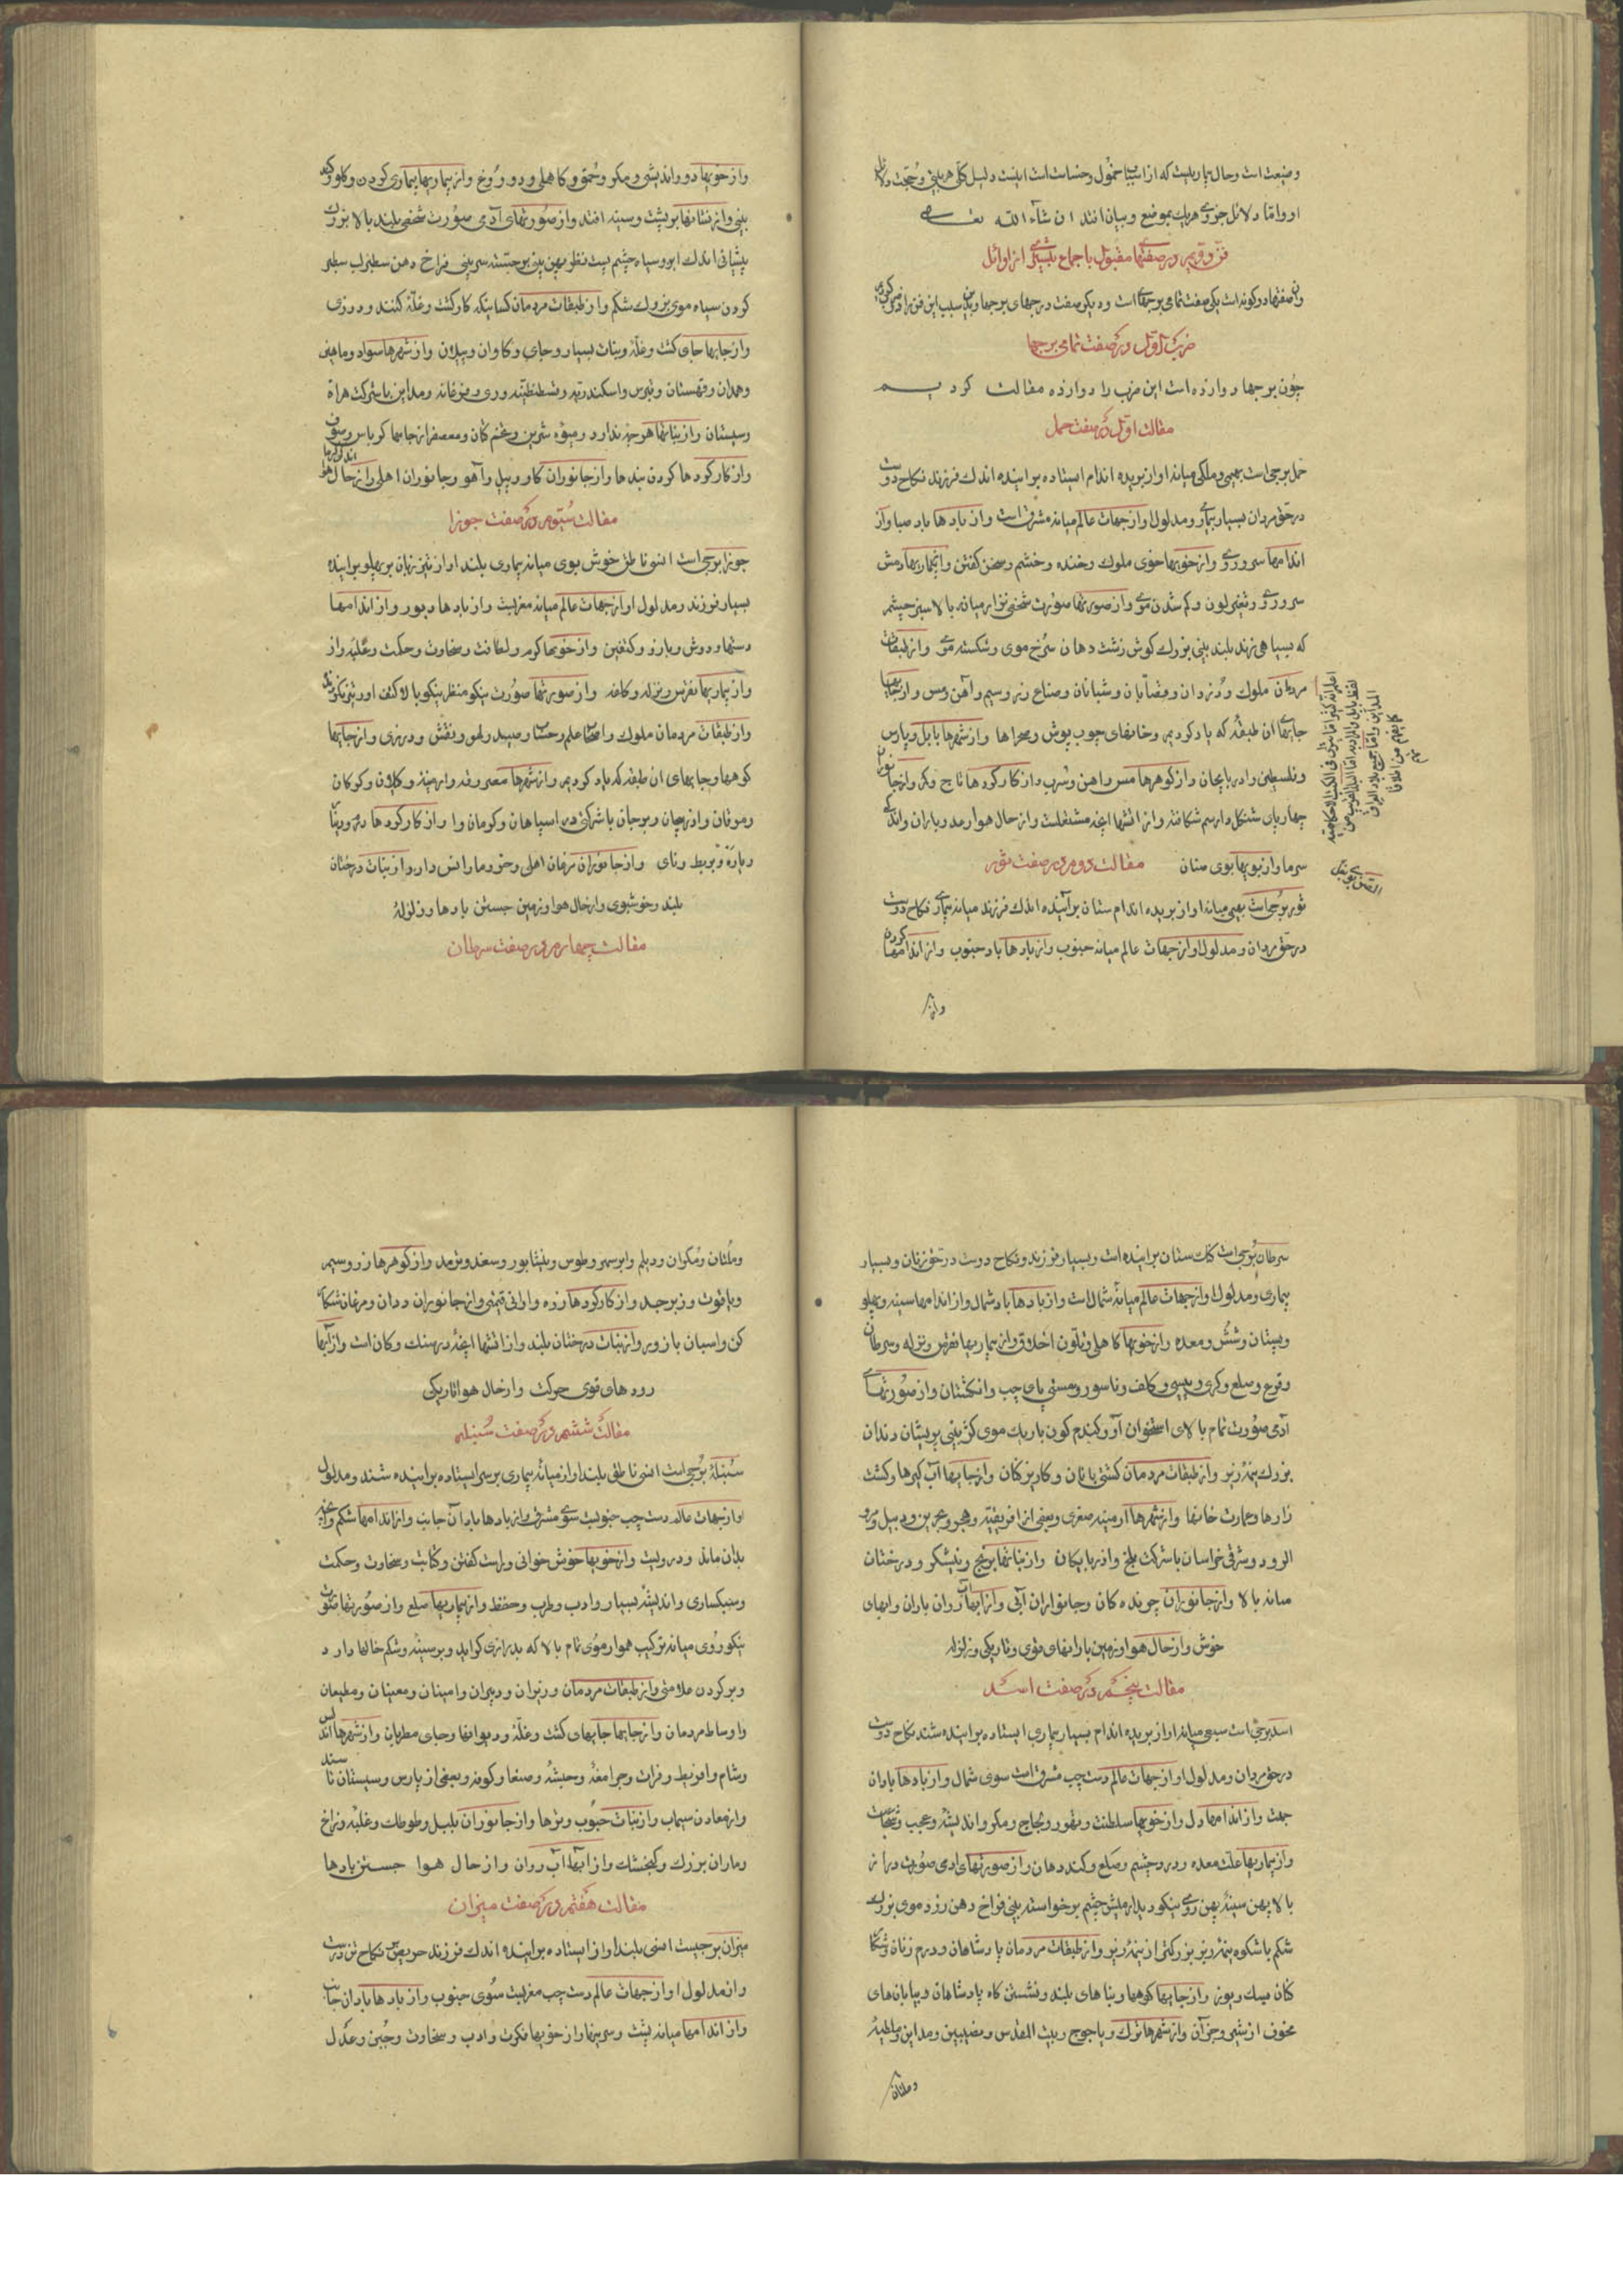 وضیعت است وحال چاریست که از اسباب خمول وخساست است اینست دلیل کلی هر یکی وحجت دلائل
او واما دلائل جزوی هر یک بموضع وبیان افتد ان شآء الله تعـــالی
فن دویم در صفتها مقبول باجماع بیشتری از اوائل
وان صفتها دو کونه است یکی صفت تمامی برجهاست ودیکر صفت درجهای برجها وبدین سبب این فن را دو ضرب کردیم
ضرب اول در صفت تمامی برجها
چون برجها دوازده است این ضرب را دوازده مقالت کردیـــم
مقالت اول در صفت حمل
حمل برجی است بهیمی وملکی میانه اواز بریده اندام ایستاده براینده اندک فرزند نکاح دوست
در حق مردان بسیار بیماری ومدلول او از جهات عالم میانه مشرق است واز بادها باد صبا واز
اندامها سر وروی واز خویها خوی ملوک وخنده وخشم وسخن کفتن واز بیماریها دمش
سر وروی وتغیر لون وکم شدن موی واز صورتها صورت شخصی نزار میانه بالا سبز چشم
که بسیاهی زند بلند بینی بزرک کوش زشت دهان سرخ موی وشکسته موی واز طبقات
مردمان ملوک ودزدان وقصابان وشبانان وصناع زر وسیم وآهن ومس واز جایها
جایهای ان طبقه که یاد کردیم وخانهای چوب پوش وصحراها واز شهرها بابل وپارس
وفلسطین وادربایجان واز کوهرها مس واهن وسرب واز کارکردها تاج وکمر واز جانوران
چهار پای شنکل دارسم شکافته واز اتشها انچه مشتعلست واز حال هوا رعد وباران واندکی
سرما واز بویها بوی متان مقالت دوم در صفت ثور
ثور برجی است بهیمی میانه اواز بریده اندام ستان برآینده اندک فرزند میانه بیماری نکاح دوست
در حق مردان ومدلول او از جهات عالم میانه جنوب واز بادها باد جنوب واز اندامها کردن
واز
واز خویها دور اندیشی ومکر وحمق وکاهلی ودروغ واز بیماریها بیماری کردن وکلو وکند
بینی واز نشانها بر پشت وسینه افتد واز صورتهای آدمی صورت شخصی بلند بالا بزرک
پیشانی اندک ابرو سیاه چشم پست نظر پهن بینی برجسته سر بینی فراخ دهن سطبر لب سطبر
کردن سیاه موی بزرک شکم واز طبقات مردمان کسانیکه کار کشت وغله کنند ودرزی
واز جایها جای کشت وغله ونبات بسیار وجای وکاوان وپیلان واز شهرها سواد وماهین
وهمدان وقهستان وقبرس واسکندریه وقسطنطنیه وری وفرغانه ومداین باشرکت هراة
وسیستان واز نباتها هر چه ندارد ومیوه شیرین وغنم کان ومعصفر از جامها کرباس وصوف
واز کارکردها کردن بندها واز جانوران کاو وپیل وآهو وجانوران اهلی واز حال هوا اندکی کرما
مقالت سیوم در صفت جوزا
جوزا برجی است انسی ناطق خوش بوی میانه بیماری بلند اواز تیز زبان بر پهلو براینده
بسیار فرزند ومدلول او از جهات عالم میانه مغربست واز بادها دبور واز اندامها
دستها ودوش وبازو وکتفین واز خویها کرم ولطافت وسخاوت وحکمت وغلبه راز
واز بیماریها نقرس ونزله وکلفه واز صورتها صورت نیکو منظر نیکو بالا کتف اور تیز نکرنده
واز طبقات مردمان ملوک واصحاب علم وحساب وصید ولهو ونقش ودرزی واز جایها
کوهها وجایهای ان طبقه که یاد کردیم واز شهرها مصر وبرقه وارمینه وکیلان وکوکان
وموقان وازرجان وبرجان باشرکتی در اسپاهان وکرمان وا واز کارکردها درم ودینار
ویاره وبربط ونای واز جانوران مرغان اهلی وخر وماران انس دارد واز نبات درختان
بلند وخوشبوی واز حال هوا وزمین جستن بادها وزلزله
مقالت چهارم در صفت سرطان
سرطان برجی است کنک ستان براینده است وبسیار فرزند ونکاح دوست در حق زنان وبسیار
بیماری ومدلول او از جهات عالم میانه شمالست واز بادها باد شمال واز اندامها سینه وپهلو
وپستان وشش ومعده واز خویها کاهلی وتلون اخلاق واز بیماریها نقرس ونزله وسرطان
وقرع وصلع وکری وپیسی وکلف وناسور وسستی پای چپ وانکشتان واز صورتهای
آدمی صورت تمام بالای استخوان آور کندم کون باریک موی کژ بینی پریشان دندان
بزرک نیمه زیر واز طبقات مردمان کشتی بانان وکاریزکنان واز جایها آب کیرها وکشت
زارها وعمارت خانها واز شهرها ارمینه صغری وبعضی از افریقیه وهجر وبحرین ودبیل ومرو
الرود وشرقی خراسان باشرکت بلخ واذربایکان واز نباتها برنج ونیشکر ودرختان
میانه بالا واز جانوران چرنده کان وجانواران آبی واز آبها آب روان باران وابهای
خوش واز حال هوا وزمین بارانهای قوی وتاریکی وزلزله
مقالت پنجم در صفت اسـد
اسد برجی است سبعی میانه اواز بریده اندام بسیار بیماری ایستاده براینده شند نکاح دوست
در حق مردان ومدلول او از جهات عالم دست چپ مشرق است سوی شمال واز بادها باد ان
جهت واز اندامها دل واز خویها سلطنت وتهور ولجاج ومکر واندیشه وعجب وشجاعت
واز بیماریها علت معده ودرد چشم وصلع وکند دهان واز صورتهای ادمی صورت دراز
بالا پهن سینه پهن روی نیکو دیدار میش چشم برخواسته بینی فراخ دهن زرد موی بزرک
شکم باشکوه نیمه زبر بزرکتر از نیمه زیر واز طبقات مردمان پادشاهان ودرم زنان وشکار
کنان بسک ویوز واز جایها کوهها وبناهای بلند ونشستن کاه پادشاهان وبیابانهای
مخوف از شیر وجز آن واز شهرها ترک ویاجوج وبیت المقدس ونصیبین ومداین وملطیه
وملتان
وملتان ومکران ودیلم وابرسهر وطوس ونیشابور وسغد وترمد واز کوهرها زر وسیم
ویاقوت وزبرجد واز کارکردها زره واوانی قیمتی واز جانوران ددان ومرغان شکار
کن واسپان بازور واز نبات درختان بلند واز اتشها انچه در سنک وکان است واز آبها
رودهای قوی حرکت واز حال هوا تاریکی
مقالت ششم در صفت سنبله
سنبله برجی است انسی ناطق بلند اواز میانه بیماری بر سر ایستاده براینده شند ومدلول
او از جهات عالم دست چپ جنوبست سوی مشرق واز بادها باد آن جانب واز اندامها شکم وانچه
بدان ماند ودرویست واز خویها خوش خوانی وراست کفتن وکتابت وسخاوت وحکمت
وسبکساری واندیشه بسیار وادب وطرب وحفظ واز بیماریها صلع واز صورتها صورت
نیکو روی میانه ترکیب هموار موی تمام بالا که بدرازی کراید وبر سینه وشکم خالها دارد
وبر کردن علامتی واز طبقات مردمان وزیران ودبیران وامینان ومغنیان ومطیعان
واوساط مردمان واز جایها جایهای کشت وغله ودیوانها وجای مطربان واز شهرها اندلس
وشام واقریطی وفرات وجرامقه وحبشه وصنعا وکوفه وبعضی از پارس وسیستان تا سند
واز معادن سیماب واز نبات حبوب وبزرها واز جانوران بلبل وطوطک وغلبه وزاغ
وماران بزرک وکنجشک واز ابها آب روان واز حال هوا جستن بادها
مقالت هفتم در صفت میزان
میزان برجیست انسی بلند اواز ایستاده براینده اندک فرزند حریص بر نکاح تن درست
واز مدلول او از جهات عالم دست چپ مغربست سوی جنوب واز بادها باد ان جانب
واز اندامها میانه پشت وسرینها واز خویها فکرت وادب وسخاوت وجبن وعدل